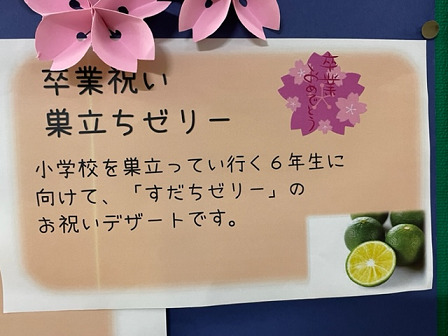 卒業祝い
巣立ちゼリー
卒業
おめでとう
小学校を巣立ってい行く６年生に
向けて、「すだちゼリー」の
お祝いデザートです。